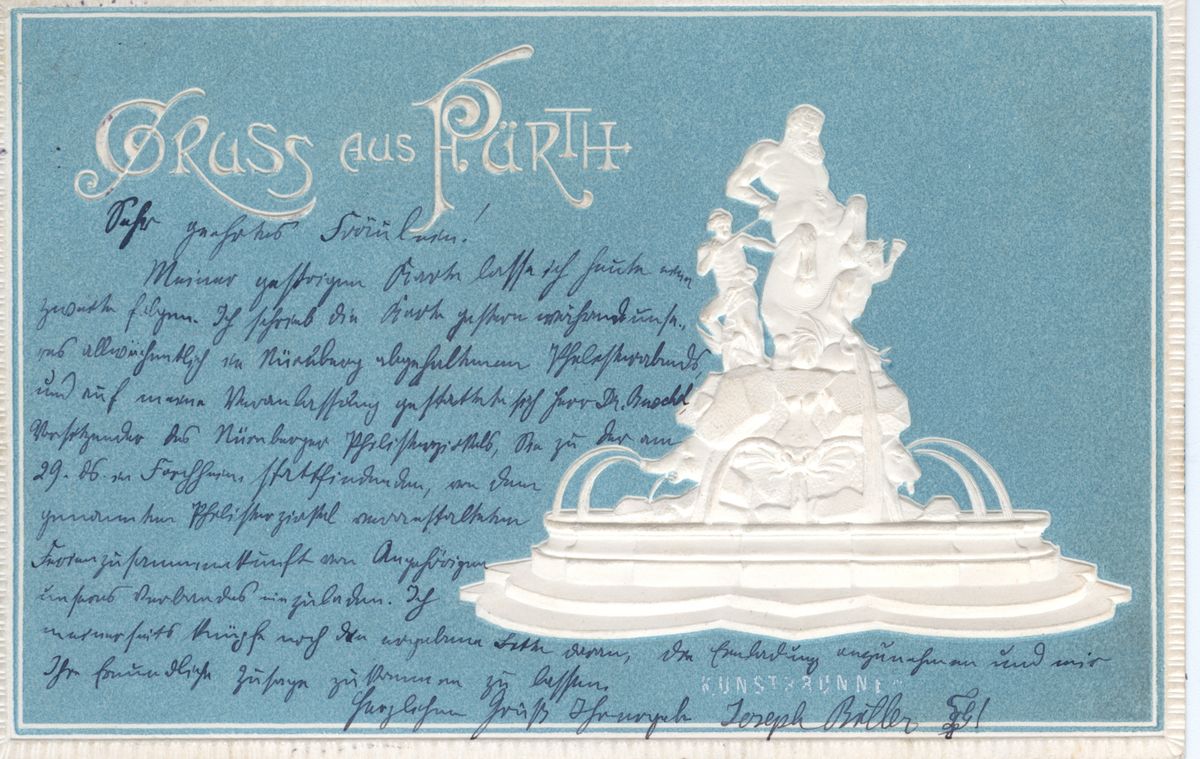 GRUSS AUS FÜRTH
Sehr geehrtes Fräulein!
Meiner gestrigen Karte lasse ich heute eine
zweite folgen. Ich schrieb die Karte gestern während unse-
res allwöchentlich in Nürnberg abgehaltenen Philisterabends
und auf meine Veranlassung gestattete sich Herr Dr.
Vorsitzender des Nürnberger Philisterzirkels, Sie zu der am
29. ds. in Forchheim stattfindenden, von dem
genannten Philisterzirkel veranstalteten
Ferienzusammenkunft von Angehörigen
unseres Verbandes einzuladen. Ich
meinerseits knüpfe noch die ergebene Bitte daran, die Einladung anzunehmen und mir
Ihre freundliche Zusage zukommen zu lassen.
KUNSTBRUNNEN
Herzlichen Gruß Ihr ergeb. Joseph Böller